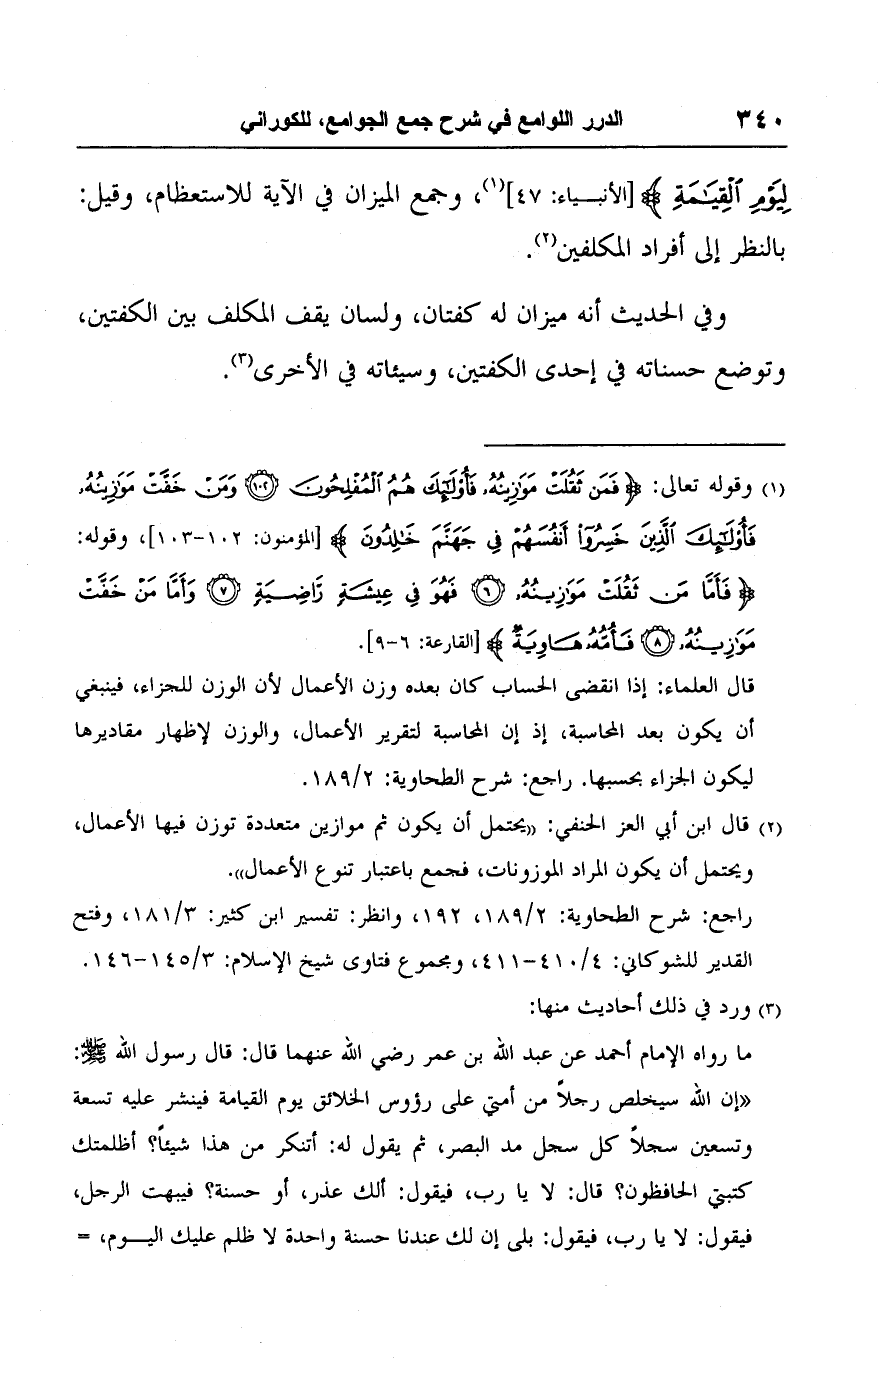 ٣٤٠ الدرر اللوامع في شرح جمع الجوامع، للكوراني
لِيَوْمِ ٱلْقِيَٰمَةِ ﴾ [الأنبياء: ٤٧](١)، وجمع الميزان في الآية للاستعظام، وقيل:
بالنظر إلى أفراد المكلفين(٢).
وفي الحديث أنه ميزان له كفتان، ولسان يقف المكلف بين الكفتين،
وتوضع حسناته في إحدى الكفتين، وسيئاته في الأخرى(٣).
(١) وقوله تعالى: ﴿ فَمَن ثَقُلَتْ مَوَٰزِينُهُۥ فَأُو۟لَٰٓئِكَ هُمُ ٱلْمُفْلِحُونَ ١٠٢ وَمَنْ خَفَّتْ مَوَٰزِينُهُۥ
فَأُو۟لَٰٓئِكَ ٱلَّذِينَ خَسِرُوٓا۟ أَنفُسَهُمْ فِى جَهَنَّمَ خَٰلِدُونَ ﴾ [المؤمنون: ١٠٢-١٠٣]، وقوله:
﴿ فَأَمَّا مَن ثَقُلَتْ مَوَٰزِينُهُۥ ٦ فَهُوَ فِى عِيشَةٍ رَّاضِيَةٍ ٧ وَأَمَّا مَنْ خَفَّتْ
مَوَٰزِينُهُۥ ٨ فَأُمُّهُۥ هَاوِيَةٌ ﴾ [القارعة: ٦-٩].
قال العلماء: إذا انقضى الحساب كان بعده وزن الأعمال لأن الوزن للجزاء، فينبغي
أن يكون بعد المحاسبة، إذ إن المحاسبة لتقرير الأعمال، والوزن لإظهار مقاديرها
ليكون الجزاء بحسبها. راجع: شرح الطحاوية: ١٨٩/٢.
(٢) قال ابن أبي العز الحنفي: «يحتمل أن يكون ثم موازين متعددة توزن فيها الأعمال،
ويحتمل أن يكون المراد الموزونات، فجمع باعتبار تنوع الأعمال».
راجع: شرح الطحاوية: ١٨٩/٢، ١٩٢، وانظر: تفسير ابن كثير: ١٨١/٣، وفتح
القدير للشوكاني: ٤١٠/٤-٤١١، ومجموع فتاوى شيخ الإسلام: ١٤٥/٣-١٤٦.
(٣) ورد في ذلك أحاديث منها:
ما رواه الإمام أحمد عن عبد الله بن عمر رضي الله عنهما قال: قال رسول الله ﷺ:
«إن الله سيخلص رجلاً من أمتي على رؤوس الخلائق يوم القيامة فينشر عليه تسعة
وتسعين سجلاً كل سجل مد البصر، ثم يقول له: أتنكر من هذا شيئاً؟ أظلمتك
كتبتي الحافظون؟ قال: لا يا رب، فيقول: ألك عذر، أو حسنة؟ فيبهت الرجل،
فيقول: لا يا رب، فيقول: بلى إن لك عندنا حسنة واحدة لا ظلم عليك اليوم، =